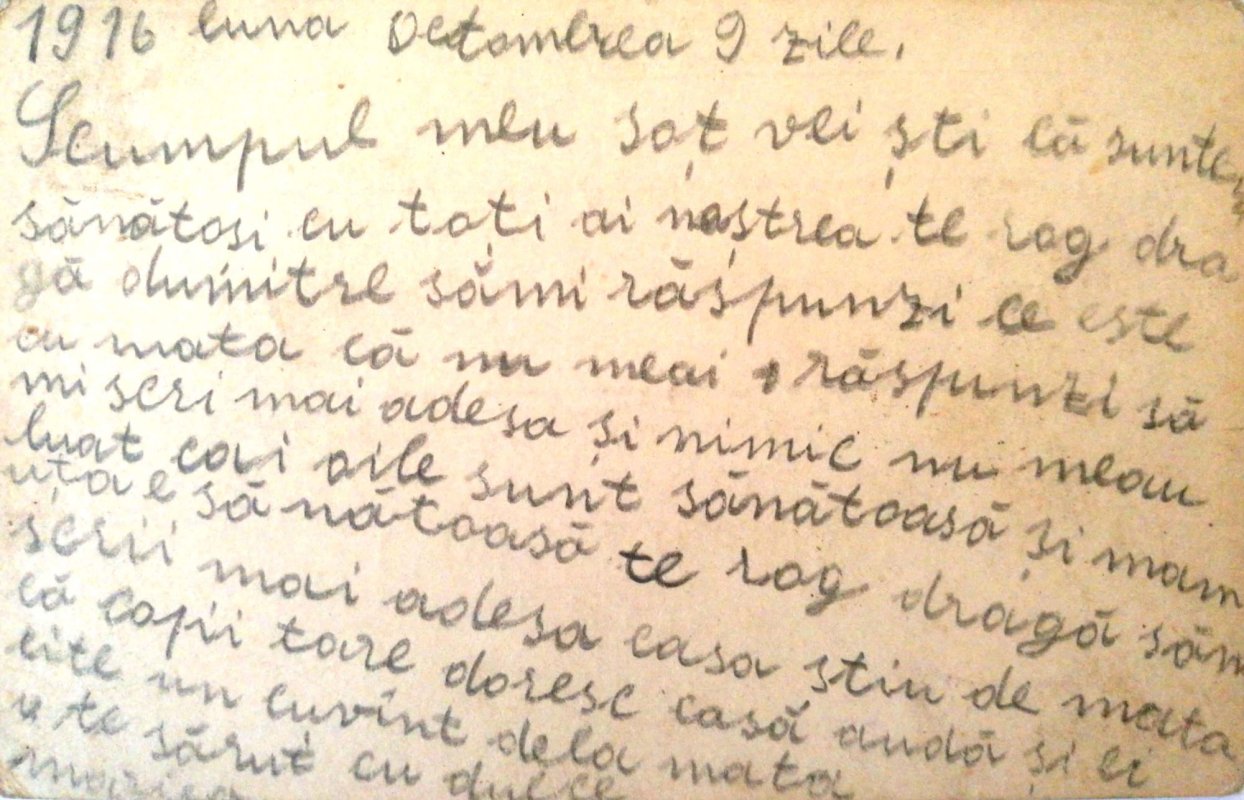 1916 luna Octombrea 9 zile.
Scumpul meu soț vei ști că suntem
sănătosi cu toți ai noștrea te rog dra
gă dumitre sămi răspunzi ce este
cu mata că nu meai răspunzi să
mi scri mai adesa și nimic nu meau
luat cai oile sunt sănătoasă și mam
uța e sănătoasă te rog dragă săm
scrii mai adesa casa știu de mata
că copii tare doresc casă audă și ei
cite un cuvînt dela mata
te sărut cu dulce